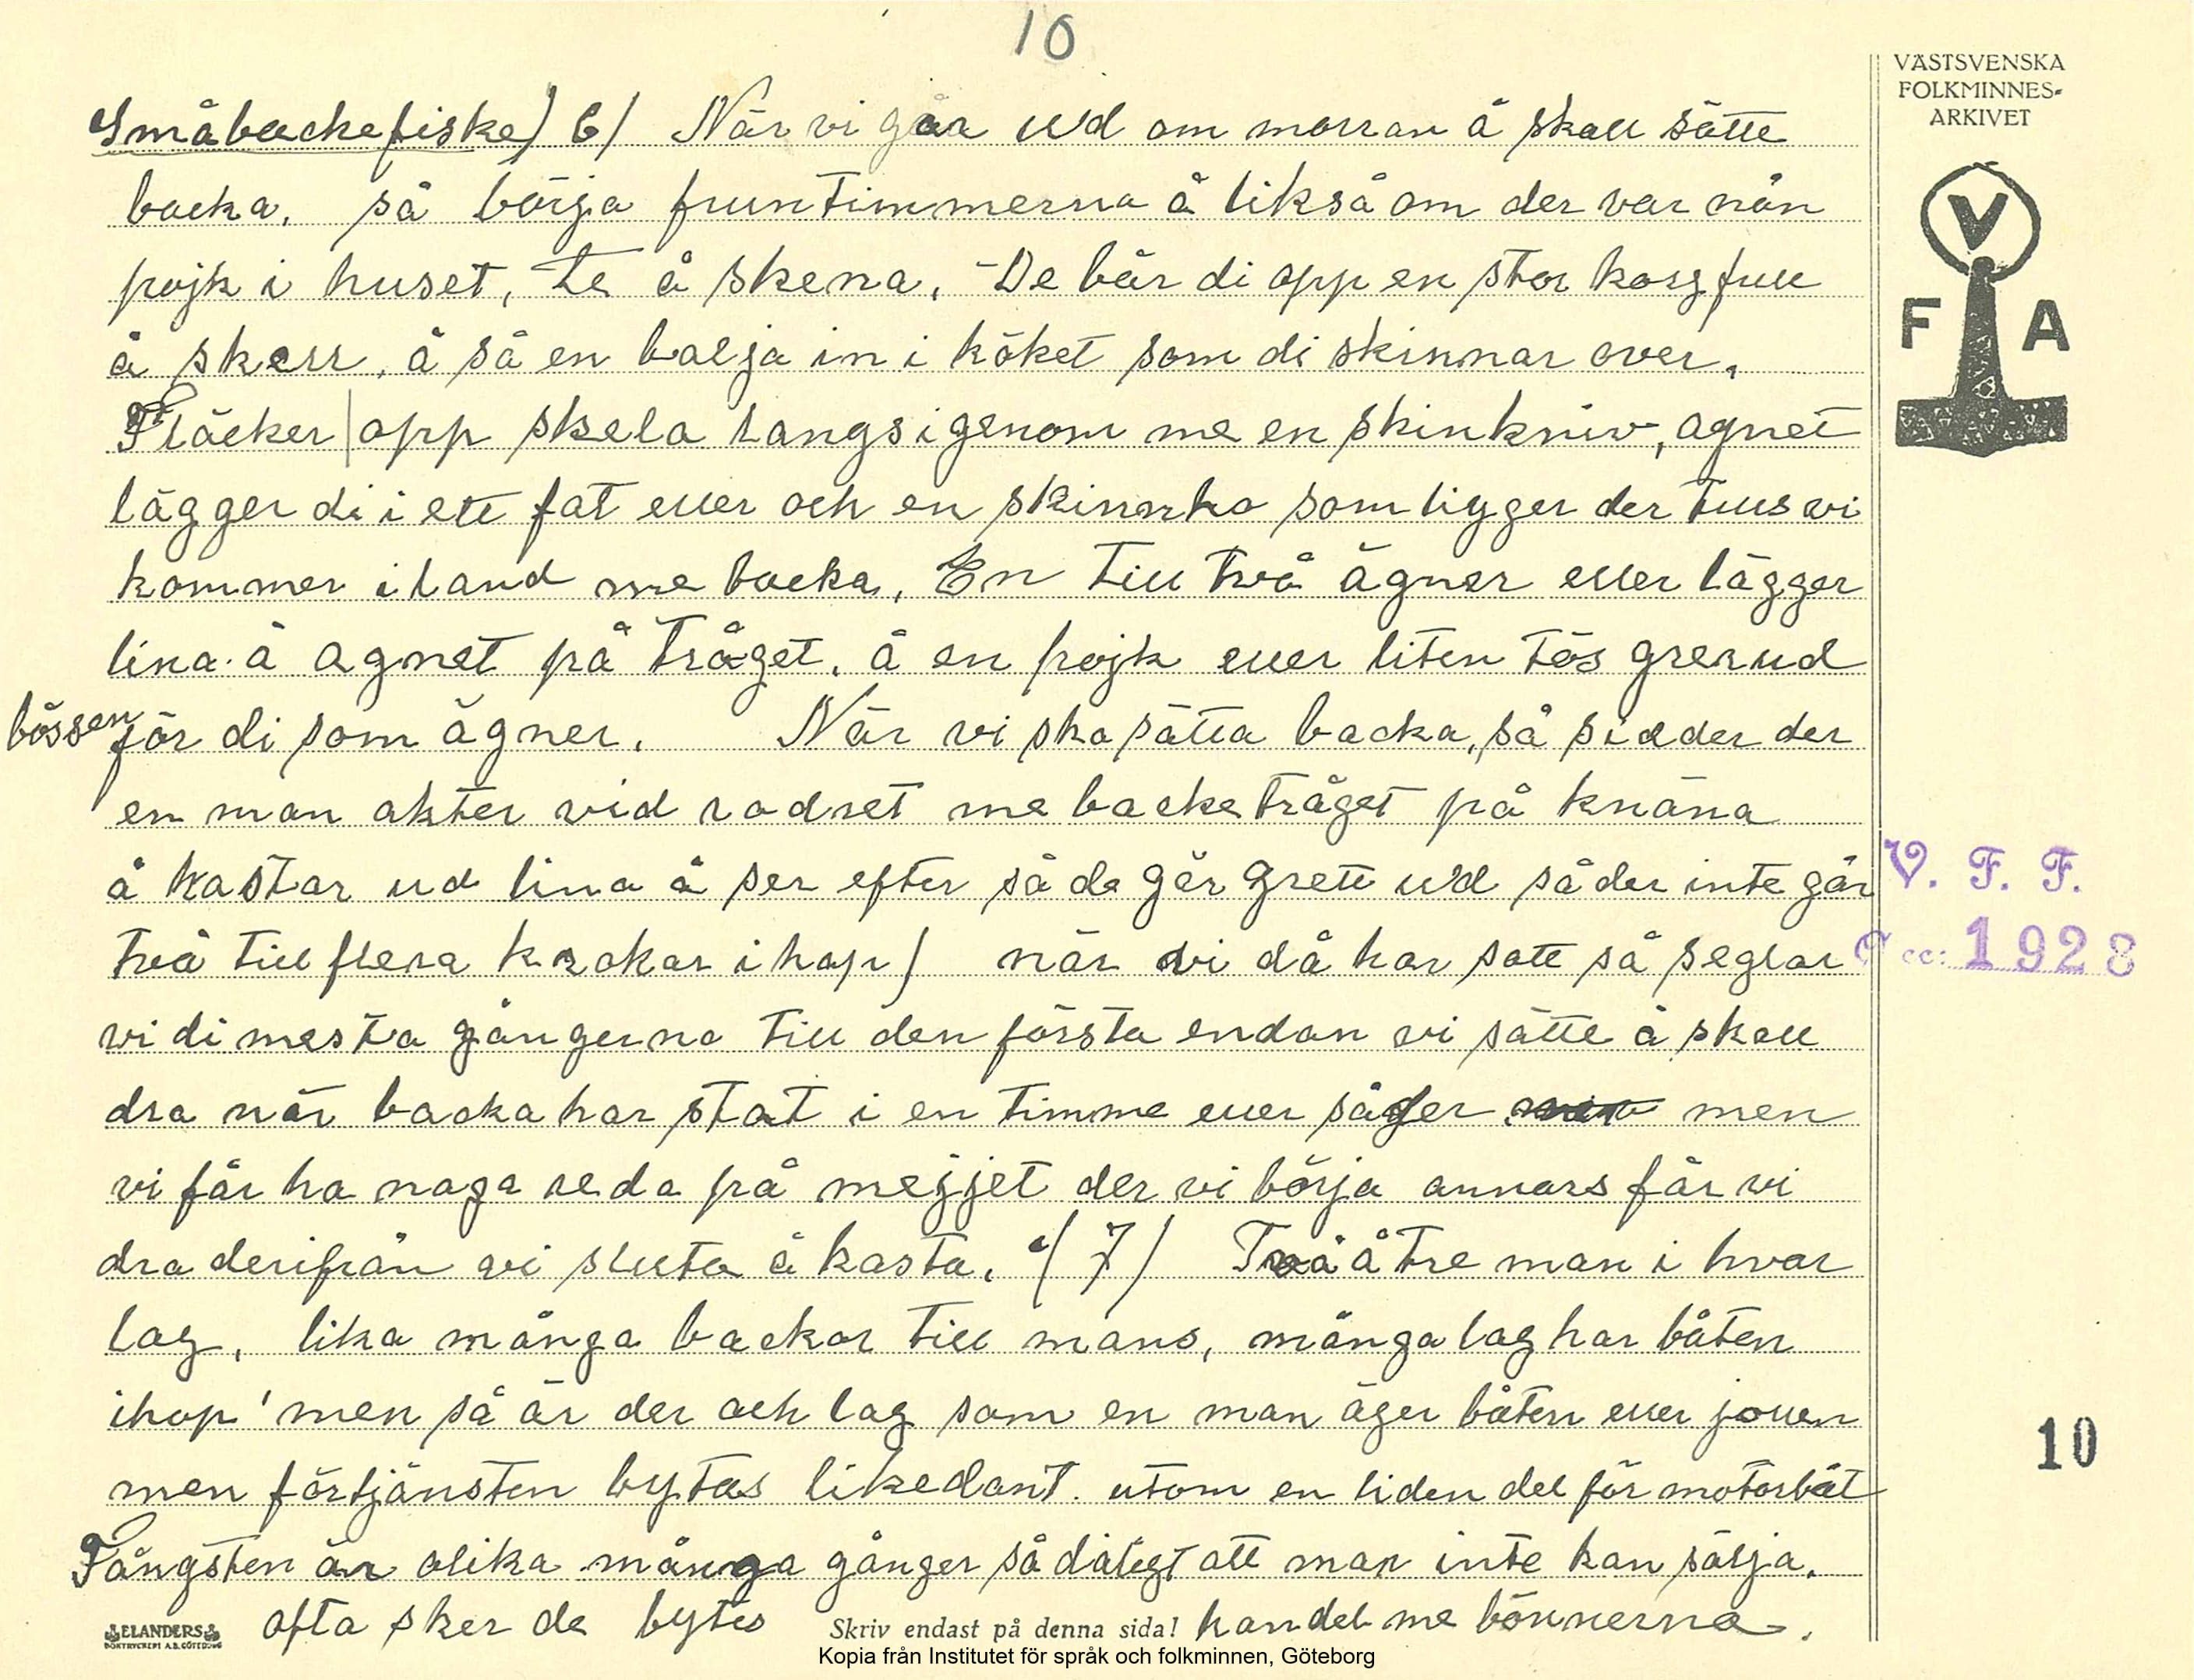 10
VÄSTSVENSKA
FOLKMINNES-
ARKIVET
V
F A
Småbackefiske) 6/ När vi gåa ud om morran å skall sätte
backa, så börja fruntimmerna å likså om der var nån
pojk i huset, te å skena. De bär di opp en stor korg full
å skell, å så en balja in i köket som di skinnar over.
Fläcker opp skela langs igenom me en skinkniv, agnet
lägger di i ett fat eller och en skinnho som ligger der tills vi
kommer i land me backa. En till två ägner eller lägger
lina å agnet på tråget, å en pojk eller liten tös grer ud
bössen för di som ägner. När vi ska sätta backa, så sidder der
en man akter vid rodret me backetråget på knäna
å kastar ud lina å ser efter så de går grett ud så der inte går
två till flera krokar ihop) när vi då har satt så seglar
vi di mesta gångerna till den första endan vi sätte å skall
dra när backa har stat i en timme eller såder men
vi får ha noga reda på mejjet der vi börja annars får vi
dra derifrån vi sluta å kasta. (7) Två å tre man i hvar
lag, lika många backor till mans, många lag har båten
ihop men så är der och lag som en man äger båten eller jollen
men förtjänsten bytas likedant. utom en liden del för motorbåt
Fångsten är olika många gånger så dåligt att man inte kan sälja.
ofta sker de bytes handel me bönnerna.
V. F. F.
Acc: 1928
10
ELANDERS
BOKTRYCKERI A.B. GÖTEBORG
Skriv endast på denna sida!
Kopia från Institutet för språk och folkminnen, Göteborg